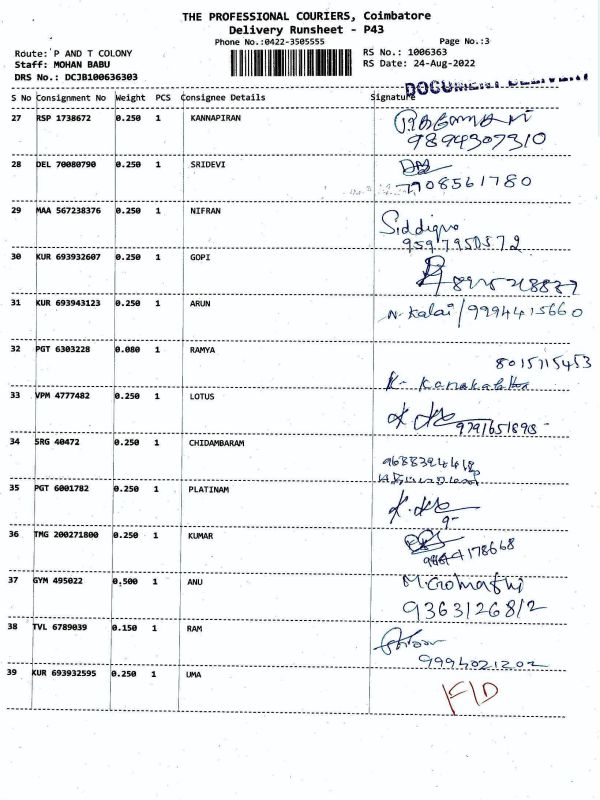 THE PROFESSIONAL COURIERS, Coimbatore
Delivery Runsheet - P43
Phone No.:0422-3505555
Page No.:3
Route: P AND T COLONY
RS No.: 1006363
Staff: MOHAN BABU
RS Date: 24-Aug-2022
DRS No.: DCJB100636303
DOCUMENT DELIVERY
S No Consignment No Weight PCS Consignee Details Signature
27 RSP 1738672 0.250 1 KANNAPIRAN
9894307310
28 DEL 70080790 0.250 1 SRIDEVI
7708561780
29 MAA 567238376 0.250 1 NIFRAN
9597950572
30 KUR 693932607 0.250 1 GOPI
31 KUR 693943123 0.250 1 ARUN
N. Kalai/9994415660
32 PGT 6303228 0.080 1 RAMYA
8015715453
33 VPM 4777482 0.250 1 LOTUS
9791651898-
34 SRG 40472 0.250 1 CHIDAMBARAM
35 PGT 6001782 0.250 1 PLATINAM
9-
36 TMG 200271800 0.250 1 KUMAR
37 GYM 495022 0.500 1 ANU
M. Gomathi
9363126812
38 TVL 6789039 0.150 1 RAM
9994021202
39 KUR 693932595 0.250 1 UMA
F/D